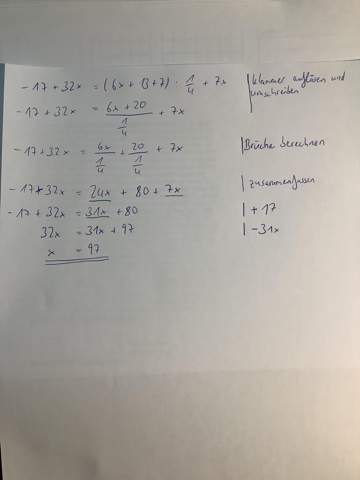 -17 + 32x = (6x + 13 + 7) · 1/4 + 7x | Klammer auflösen und umschreiben
-17 + 32x = (6x + 20)/(1/4) + 7x
-17 + 32x = 6x/(1/4) + 20/(1/4) + 7x | Brüche berechnen
-17 + 32x = 24x + 80 + 7x | zusammenfassen
-17 + 32x = 31x + 80 | + 17
32x = 31x + 97 | - 31x
x = 97